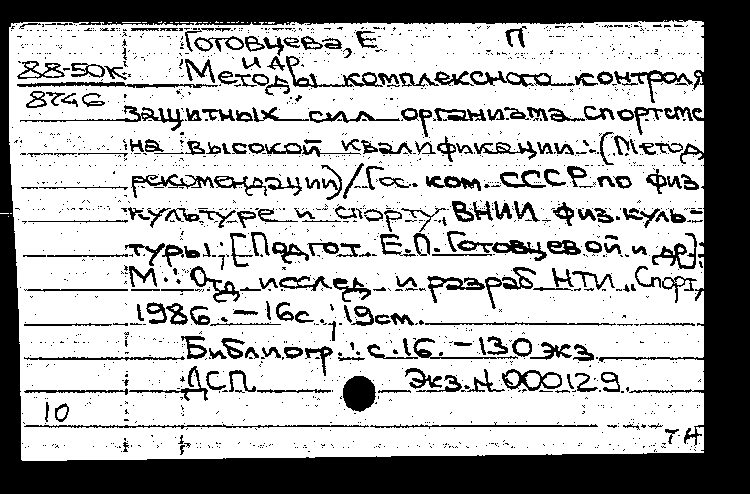 Готовцева, Е П
и др.
88-50к Методы комплексного контроля
8746 защитных сил организма спортсме
на высокой квалификации: (Метод.
рекомендации)/Гос. ком. СССР по физ.
культуре и спорту, ВНИИ физ.куль-
туры; [Подгот. Е.П. Готовцевой и др].:
М.: Отд исслед и разраб НТИ „Спорт,
1986. – 16с.; 19см.
Библиогр.: с.16. – 130 экз.
ДСП Экз.N 000129.
10
ТН